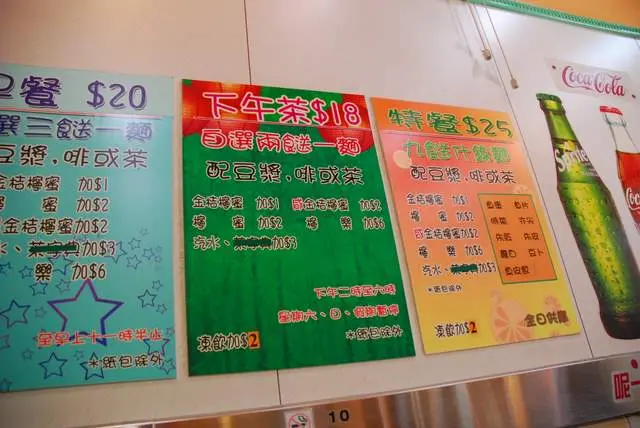 餐 $20
選三餸一麵
豆漿,啡或茶
金桔檸蜜 加$1
蜜 加$2
金桔檸蜜加$2
水、加$3
樂 加$6
至早上十一時半止
*紙包除外
下午茶$18
自選兩餸一麵
配豆漿,啡或茶
金桔檸蜜 加$1 鹹金桔檸蜜加$2
檸 蜜 加$2 檸 樂 加$6
汽水、加$3
下午二時至六時
星期六、日、假期暫停
凍飲加$2 *紙包除外
特餐$25
九餸什錦麵
配豆漿,啡或茶
金桔檸蜜 加$1
檸 蜜 加$2
鹹金桔檸蜜加$2
檸 樂 加$6
汽水、加$3
*紙包除外
凍飲加$2
全日供應
Coca-Cola
Sprite
呢一
10